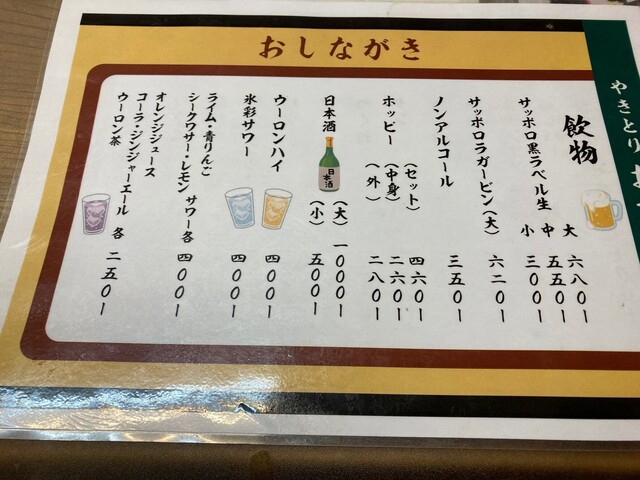 おしながき
やきとり
飲物
サッポロ黒ラベル生 大 六八〇ー
中 五五〇ー
小 三〇〇ー
サッポロラガービン(大) 六二〇ー
ノンアルコール 三五〇ー
ホッピー (セット) 四六〇ー
(中身) 二六〇ー
(外) 二八〇ー
日本酒 (大) 一〇〇〇ー
(小) 五〇〇ー
日本酒
ウーロンハイ 四〇〇ー
氷彩サワー 四〇〇ー
ライム・青りんご
シークワサー・レモン サワー各 四〇〇ー
オレンジジュース
コーラ・ジンジャーエール 各 二五〇ー
ウーロン茶